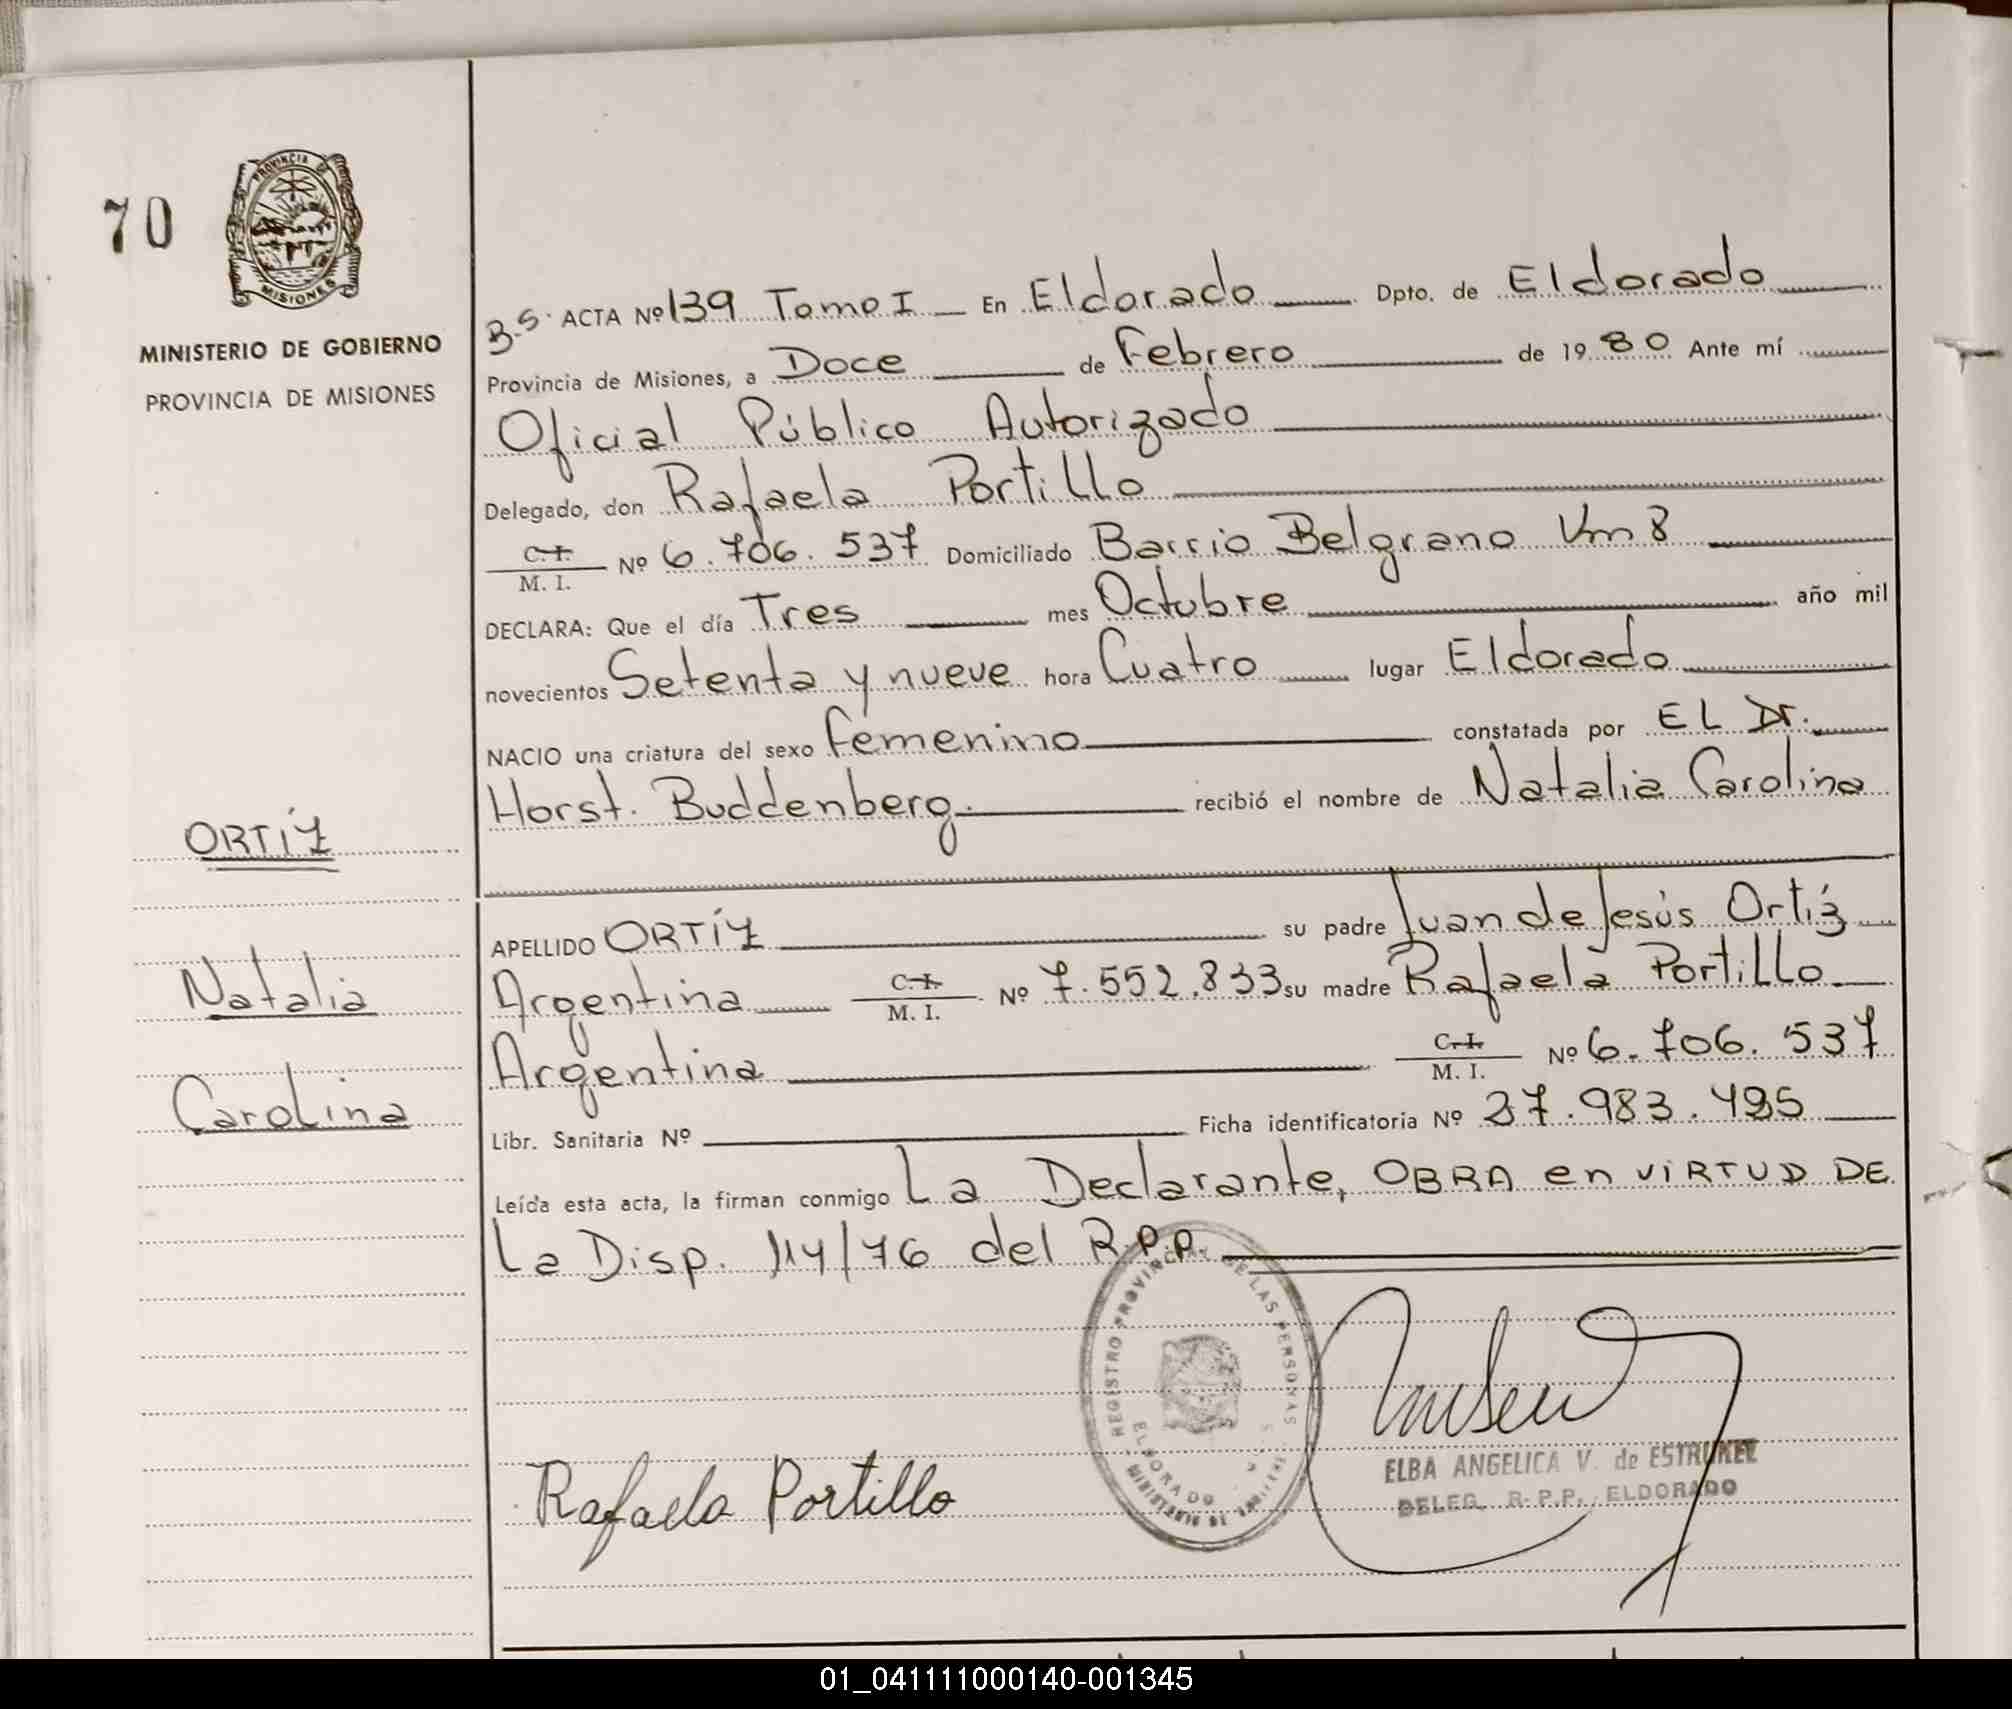 70
PROVINCIA DE
MISIONES
MINISTERIO DE GOBIERNO
PROVINCIA DE MISIONES
ORTÍZ
Natalia
Carolina
B-S. ACTA Nº 139 Tomo I En Eldorado Dpto. de Eldorado
Provincia de Misiones, a Doce de Febrero de 1980 Ante mí
Oficial Público Autorizado
Delegado, don Rafaela Portillo
C.I. / M. I. Nº 6.706.537 Domiciliado Barrio Belgrano Km 8
DECLARA: Que el día Tres mes Octubre año mil
novecientos Setenta y nueve hora Cuatro lugar Eldorado
NACIO una criatura del sexo Femenino constatada por EL Dr.
Horst. Buddenberg. recibió el nombre de Natalia Carolina
APELLIDO ORTÍZ su padre Juan de Jesús Ortíz
Argentina C.I. / M. I. Nº 7.552.833 su madre Rafaela Portillo
Argentina C.I. / M. I. Nº 6.706.537
Libr. Sanitaria Nº Ficha identificatoria Nº
Leída esta acta, la firman conmigo La Declarante, OBRA en VIRTUD DE
La Disp. 114/76 del R.P.P.
REGISTRO PROVINCIAL DE LAS PERSONAS
ELDORADO
Rafaela Portillo
ELBA ANGELICA V. de
DELEG. R.P.P. ELDORADO
01_041111000140-001345